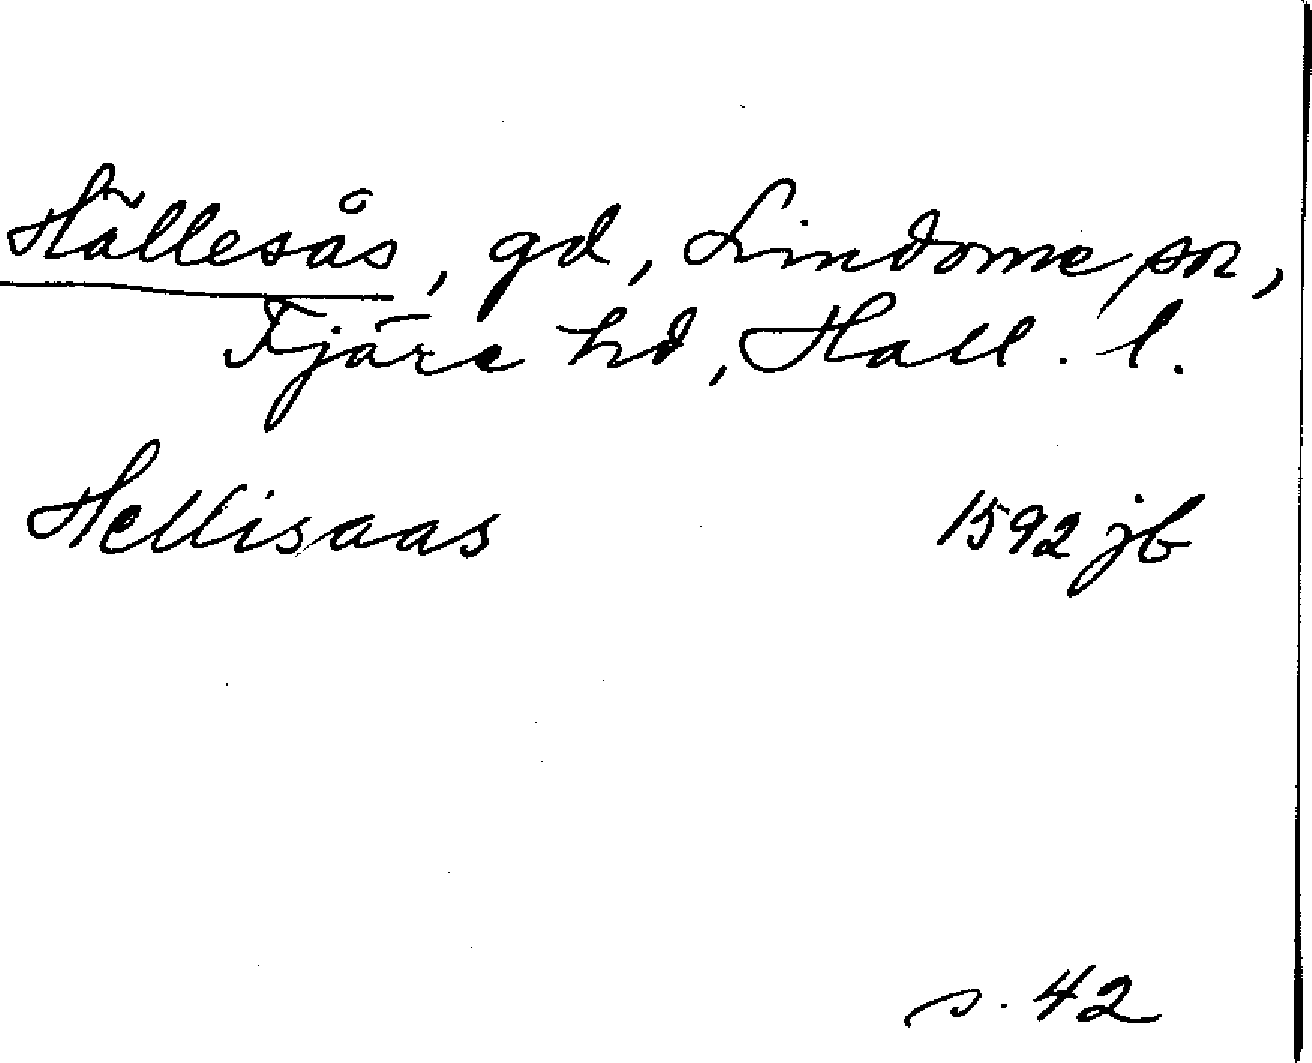 Hällesås, gd, Lindome sn,
Fjäre hd, Hall. l.
Hellisaas 1592 jb
s. 42